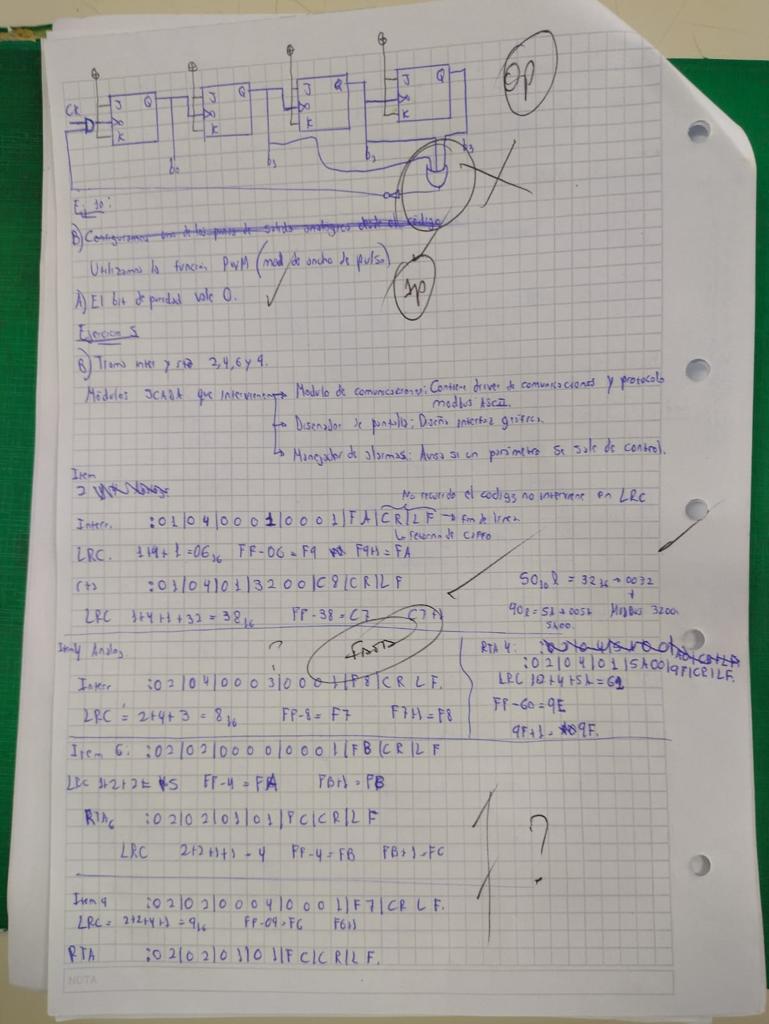 J Q J Q J Q J Q
CK
K K K K
b0 b1 b2 b3
0p
Ej 10:
Utilizamos la función PWM (mod de ancho de pulso)
1p
A) El bit de paridad vale 0.
Ejercicio 5
B) Tramo inter y rta 2,4,6 y 9.
Módulos SCADA que intervienen → Modulo de comunicaciones: Contiene driver de comunicaciones y protocolo
modbus ASCII.
→ Disenador de pantalla: Diseña interfaz gráfica.
→ Manejador de alarmas: Avisa si un parámetro se sale de control.
Item
2
No recuerdo el codigo no interviene en LRC
Interr. :01|04|0001|0001|FA|CR|LF → fin de linea
↳ retorno de carro
LRC. 1+4+1=06₁₆ FF-06=F9 F9+1=FA
rta :01|04|01|3200|C8|CR|LF
50₁₀ = 32₁₆ → 0032
LRC 1+4+1+32=38₁₆ FF-38=C7 C7+1
Modbus 3200
5A00.
Item 4 Analog
?
Falta
Interr :02|04|0003|0001|F8|CR|LF.
LRC = 2+4+3=8₁₆ FF-8=F7 F7+1=F8
RTA 4:
:02|04|01|5A00|9F|CR|LF.
FF-60=9E
9F.
Item 6: :02|02|0000|0001|FB|CR|LF
RTA6 :02|02|01|01|FC|CR|LF
LRC 2+2+1+1=4 FF-4=FB FB+1=FC
?
Item 9 :02|02|0004|0001|F7|CR LF.
LRC= 2+2+4+1=9₁₆ FF-09=F6 F6+1
RTA :02|02|01|01|FC|CR|LF.
NOTA